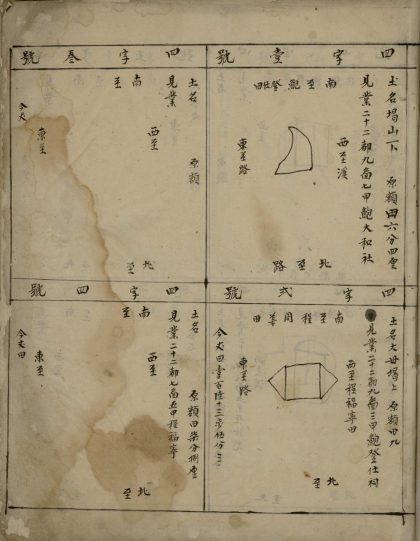 四字壹號
土名塌山下 原額田六分四釐
見業二十二都九啚七甲鮑大和社
南至鮑登仕田
西至溪
東至路
北至路
四字弍號
土名大母塌上 原額田九
見業二十二都九啚三甲鮑登仕祠
南至程用 田
西至程福寧田
東至路
北至
今丈田壹百陸十三步伍分三
四字叁號
土名 原額
見業
南至
西至
東至
北至
今丈
四字四號
土名 原額田柒分捌釐
見業二十二都七啚五甲程福寧
南至
西至
東至
北至
今丈田